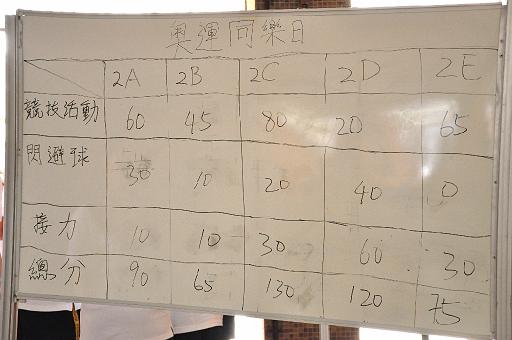 奧運同樂日
2A 2B 2C 2D 2E
競技活動 60 45 80 20 65
閃避球 30 10 20 40 0
接力 10 10 30 60 30
總分 90 65 130 120 75